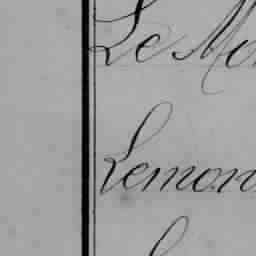 Le M
Lemon